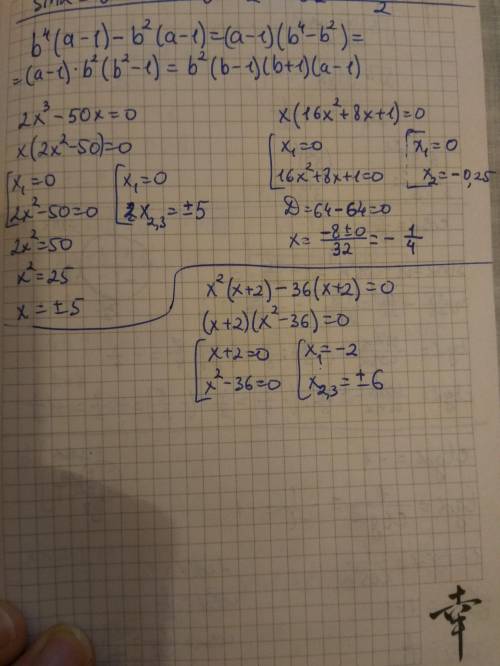 b⁴(a-1)-b²(a-1)=(a-1)(b⁴-b²)=
=(a-1)·b²(b²-1)=b²(b-1)(b+1)(a-1)
2x³-50x=0
x(2x²-50)=0
[x₁=0
2x²-50=0
[x₁=0
x₂,₃=±5
2x²=50
x²=25
x=±5
x(16x²+8x+1)=0
[x₁=0
16x²+8x+1=0
[x₁=0
x₂=-0,25
D=64-64=0
x=(-8±0)/32=-1/4
x²(x+2)-36(x+2)=0
(x+2)(x²-36)=0
[x+2=0
x²-36=0
[x₁=-2
x₂,₃=±6
幸